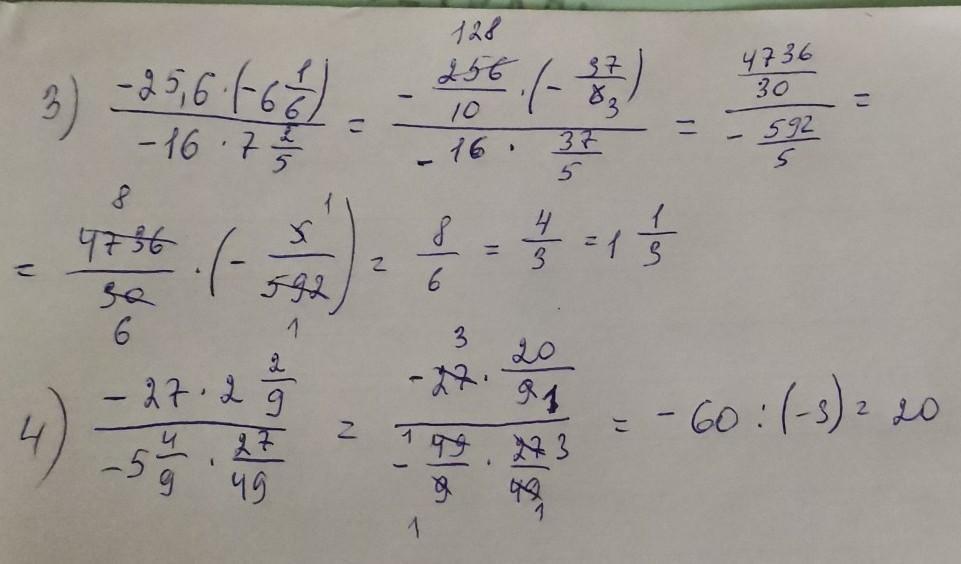 3) (-25,6 · (-6 1/6)) / (-16 · 7 2/5) = (- 256/10 · (- 37/6)) / (- 16 · 37/5) = (4736/30) / (- 592/5) =
128 3
= 4736/30 · (- 5/592) = 8/6 = 4/3 = 1 1/3
8 6 1 1
4) (- 27 · 2 2/9) / (-5 4/9 · 27/49) = (- 27 · 20/9) / (- 49/9 · 27/49) = - 60 : (-3) = 20
3 1 1 1 3 1